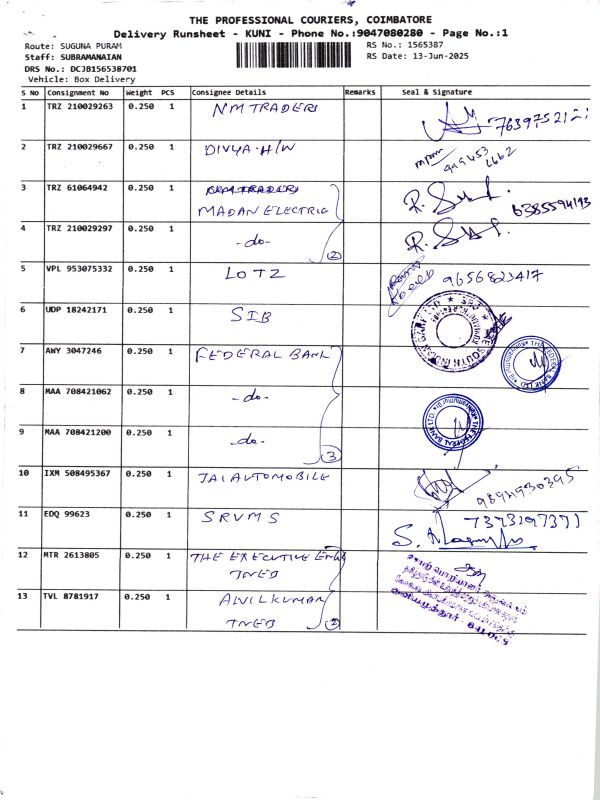 THE PROFESSIONAL COURIERS, COIMBATORE
Delivery Runsheet - KUNI - Phone No.:9047080280 - Page No.:1
Route: SUGUNA PURAM
RS No.: 1565387
Staff: SUBRAMANAIAN
RS Date: 13-Jun-2025
DRS No.: DCJB156538701
Vehicle: Box Delivery
S No Consignment No Weight PCS Consignee Details Remarks Seal & Signature
1 TRZ 210029263 0.250 1 NM TRADERS
2 TRZ 210029667 0.250 1 DIVYA H/W
3 TRZ 61064942 0.250 1 MADAN ELECTRIC 6385594193
4 TRZ 210029297 0.250 1 -do- 2
5 VPL 953075332 0.250 1 LOTZ 9656823417
6 UDP 18242171 0.250 1 SIB
7 AWY 3047246 0.250 1 FEDERAL BANK
THE FEDERAL BANK LTD
8 MAA 708421062 0.250 1 -do-
9 MAA 708421200 0.250 1 -do- 3
THE FEDERAL BANK LTD
10 IXM 508495367 0.250 1 JAI AUTOMOBILE 9894930395
11 EDQ 99623 0.250 1 SRVMS 7373197371
12 MTR 2613805 0.250 1 THE EXECUTIVE
TNEB
13 TVL 8781917 0.250 1
TNEB 2